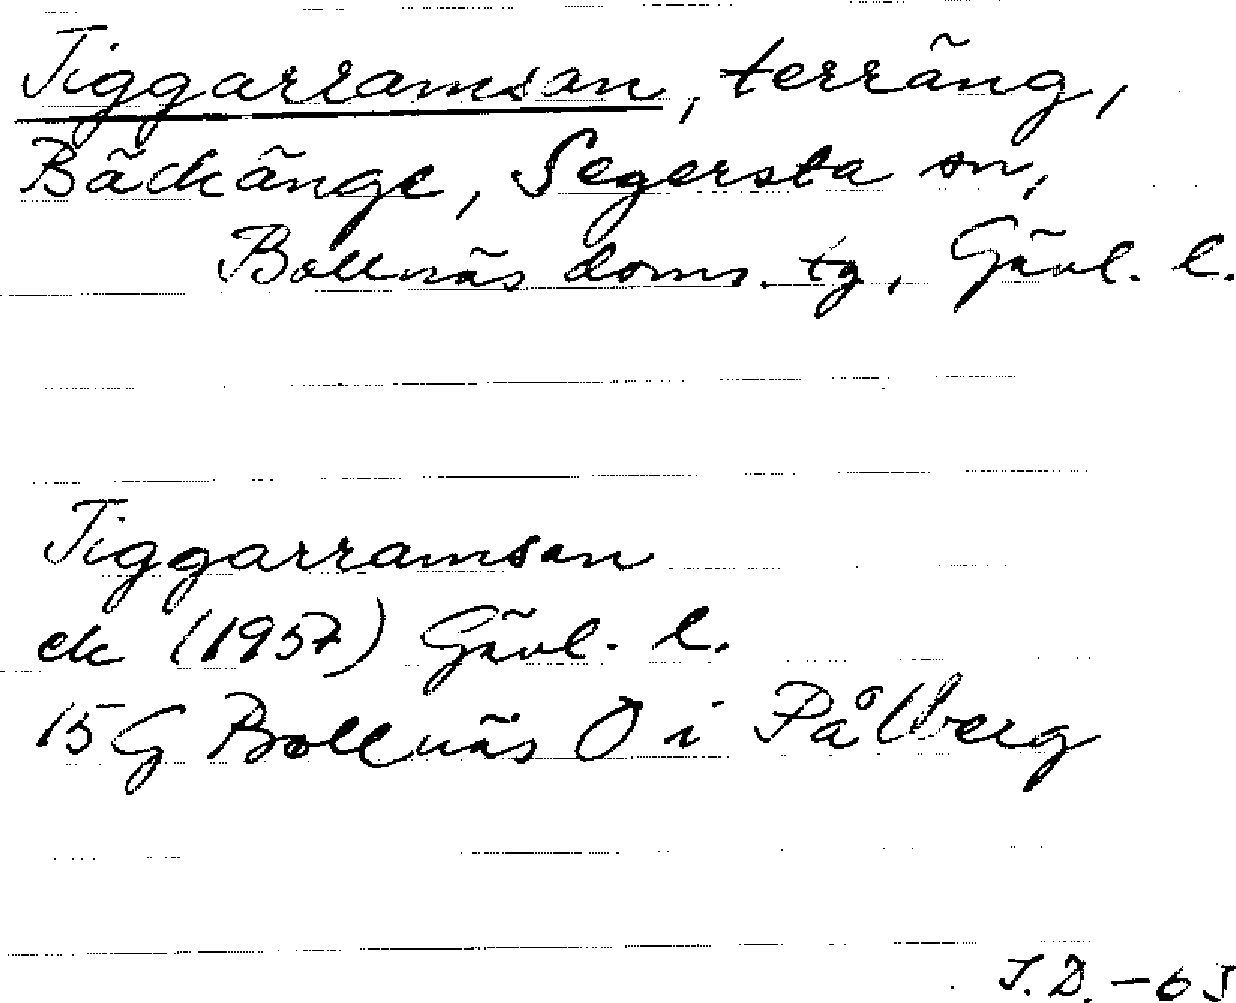 Tiggarramsan, terräng,
Bäckänge, Segersta sn,
Bollnäs doms. tg, Gävl. l.
Tiggarramsan
ek (1957) Gävl. l.
15G Bollnäs O i Pålberg